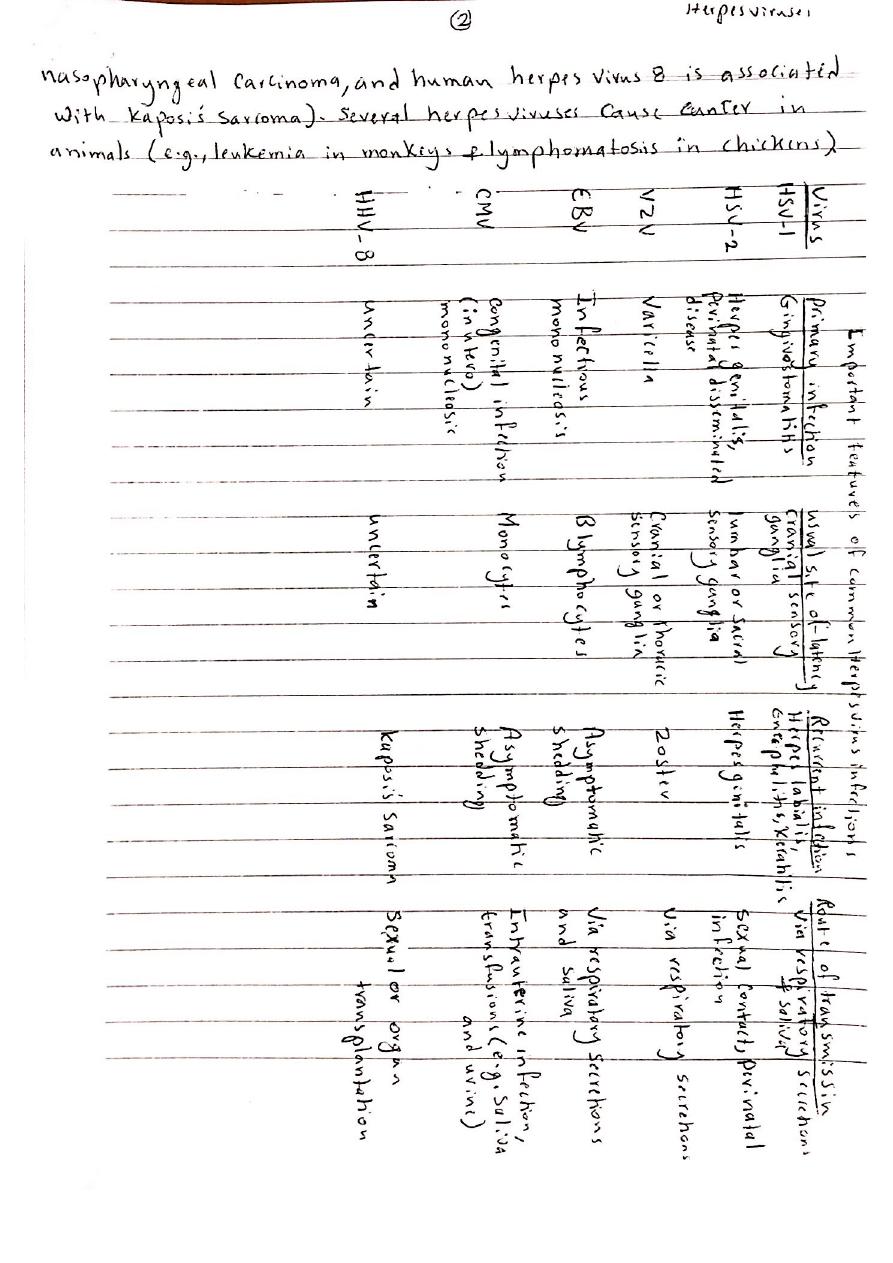 ②
Herpesviruses
nasopharyngeal carcinoma, and human herpes virus 8 is associated
with Kaposi's sarcoma). Several herpesviruses cause cancer in
animals (e.g., leukemia in monkeys & lymphomatosis in chickens)
Important features of common Herpesvirus infections
Virus Primary infection usual site of latency Recurrent infection Route of transmissin
HSV-1 Gingivostomatitis cranial sensory Herpes labialis, via respiratory secretions
ganglia encephalitis, Keratitis & saliva
HSV-2 Herpes genitalis, lumbar or sacral Herpes ginitalis sexual contact, perinatal
perinatal disseminated sensory ganglia infection
disease
VZV Varicella Cranial or thoracic zoster via respiratory secretions
sensory ganglia
EBV Infectious B lymphocytes Asymptomatic via respiratory secretions
mononucleosis shedding and saliva
CMV congenital infection Monocytes Asymptomatic Intrauterine infection,
(in utero) shedding transfusions (e.g. saliva
mononucleosis and urine)
HHV-8 uncertain uncertain Kaposi's sarcoma Sexual or organ
transplantation